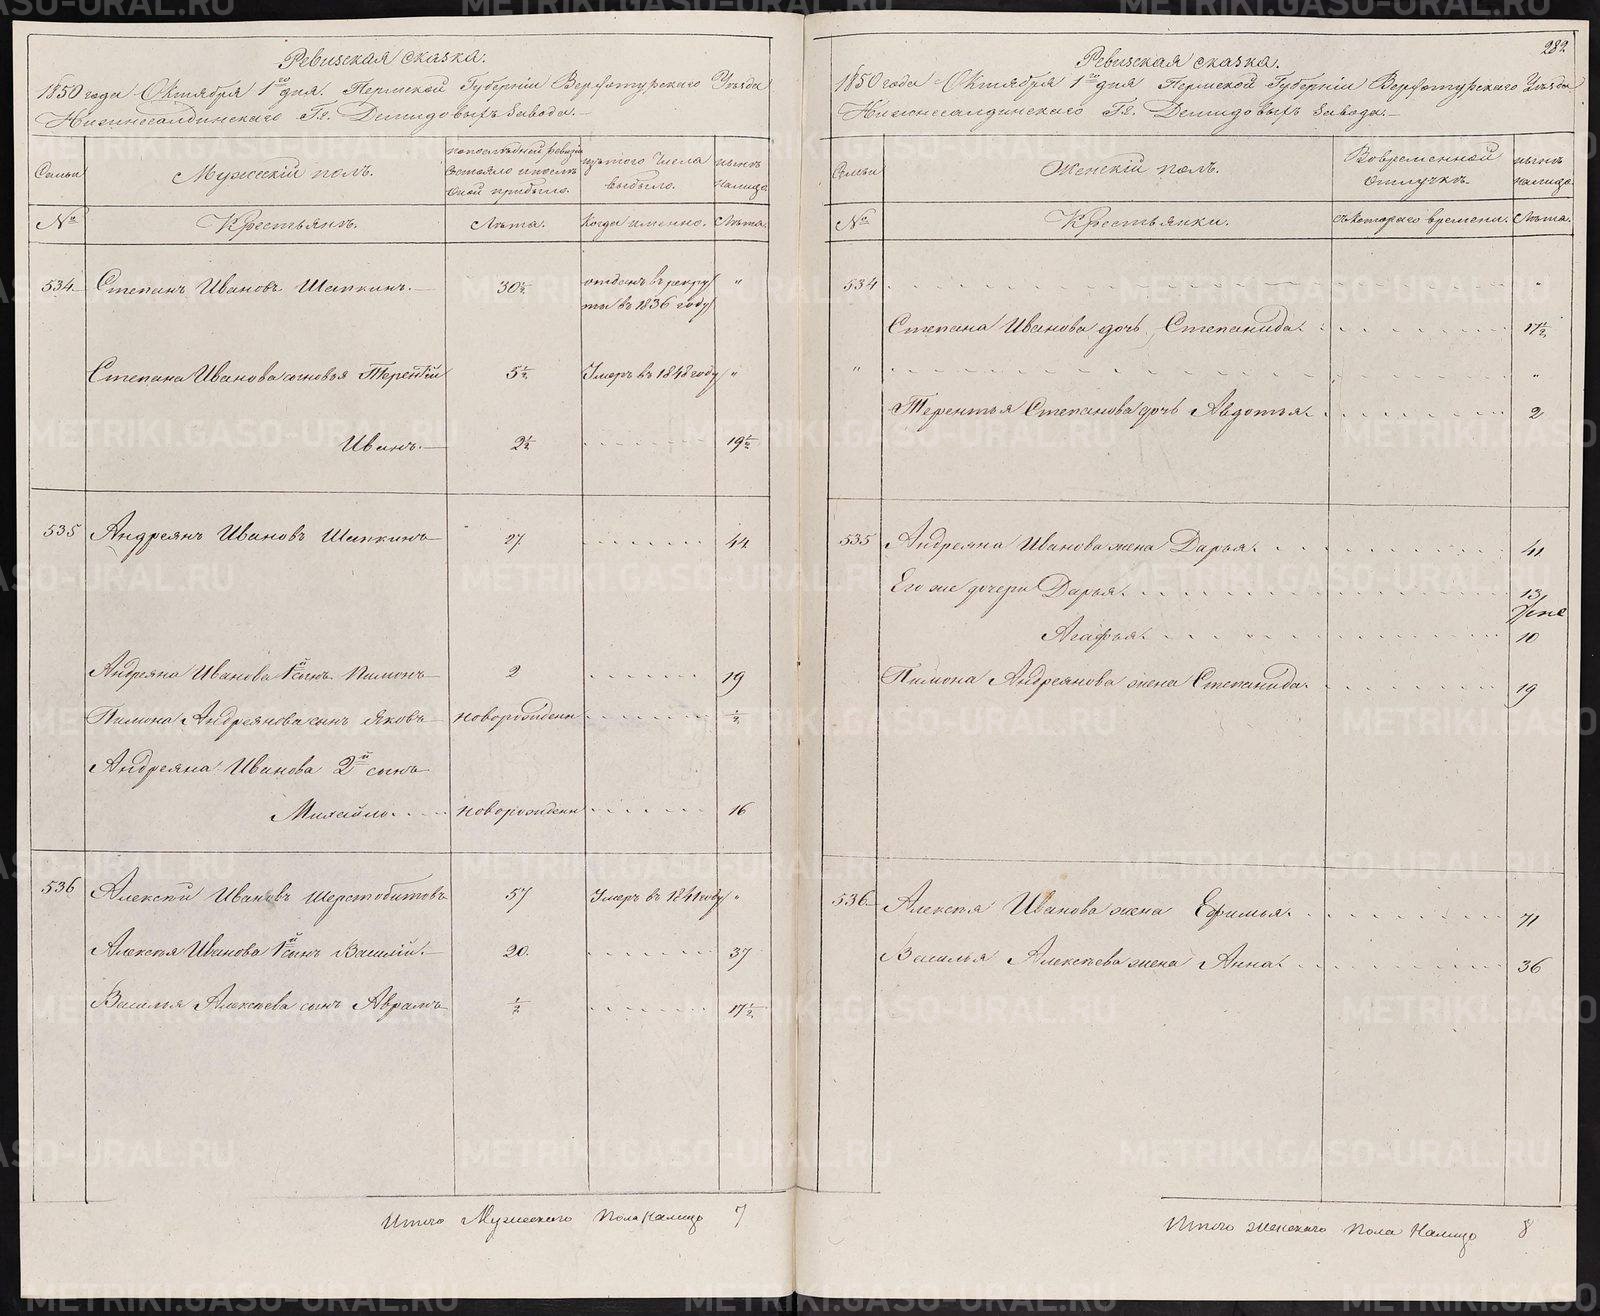 Ревизская сказка.
1850 года Октября 1го дня. Пермской Губерніи Верхотурскаго Уѣзда
Нижнесалдинскаго Гг. Демидовыхъ завода.
Семьи
Мужескій полъ.
По последней ревизіи состояло и после оной прибыло.
Изъ того числа выбыло.
Нынѣ на лицо.
№
Крестьянъ.
Лѣта.
Когда именно.
Лѣта.
534. Степанъ Ивановъ Шапкинъ. 30½ отданъ въ рекру-
ты въ 1836 году "
Степана Иванова сыновья Терентій 5½ Умеръ въ 1848 году "
Иванъ. 2½ 19½
535 Андреянъ Ивановъ Шапкинъ 27 44
Андреяна Иванова 1й сынъ Пимонъ 2 19
Пимона Андреянова сынъ Яковъ новорожденъ ½
Андреяна Иванова 2й сынъ
Михайло. новорожденъ 16
536 Алексѣй Ивановъ Шерстобитовъ 57 Умеръ въ 1841 году "
Алексѣя Иванова 1й сынъ Василій. 20. 37
Василья Алексѣева сынъ Аврамъ ½ 17½
Итого Мужескаго пола налицо 7
282
Ревизская сказка.
1850 года Октября 1го дня Пермской Губерніи Верхотурскаго Уѣзда
Нижнесалдинскаго Гг. Демидовыхъ завода.
Семьи
Женскій полъ.
Во временной отлучкѣ.
Нынѣ налицо.
№
Крестьянки.
съ котораго времени.
Лѣта.
534 "
Степана Иванова дочь Степанида. 17½
" "
Терентья Степанова дочь Авдотья. 2
535 Андреяна Иванова жена Дарья. 41
Его же дочери Дарья. 13
Агафья. 10
Пимона Андреянова жена Степанида. 19
536. Алексѣя Иванова жена Ефимья. 71
Василья Алексѣева жена Анна. 36
Итого женскаго пола налицо 8
METRIKI.GASO-URAL.RU